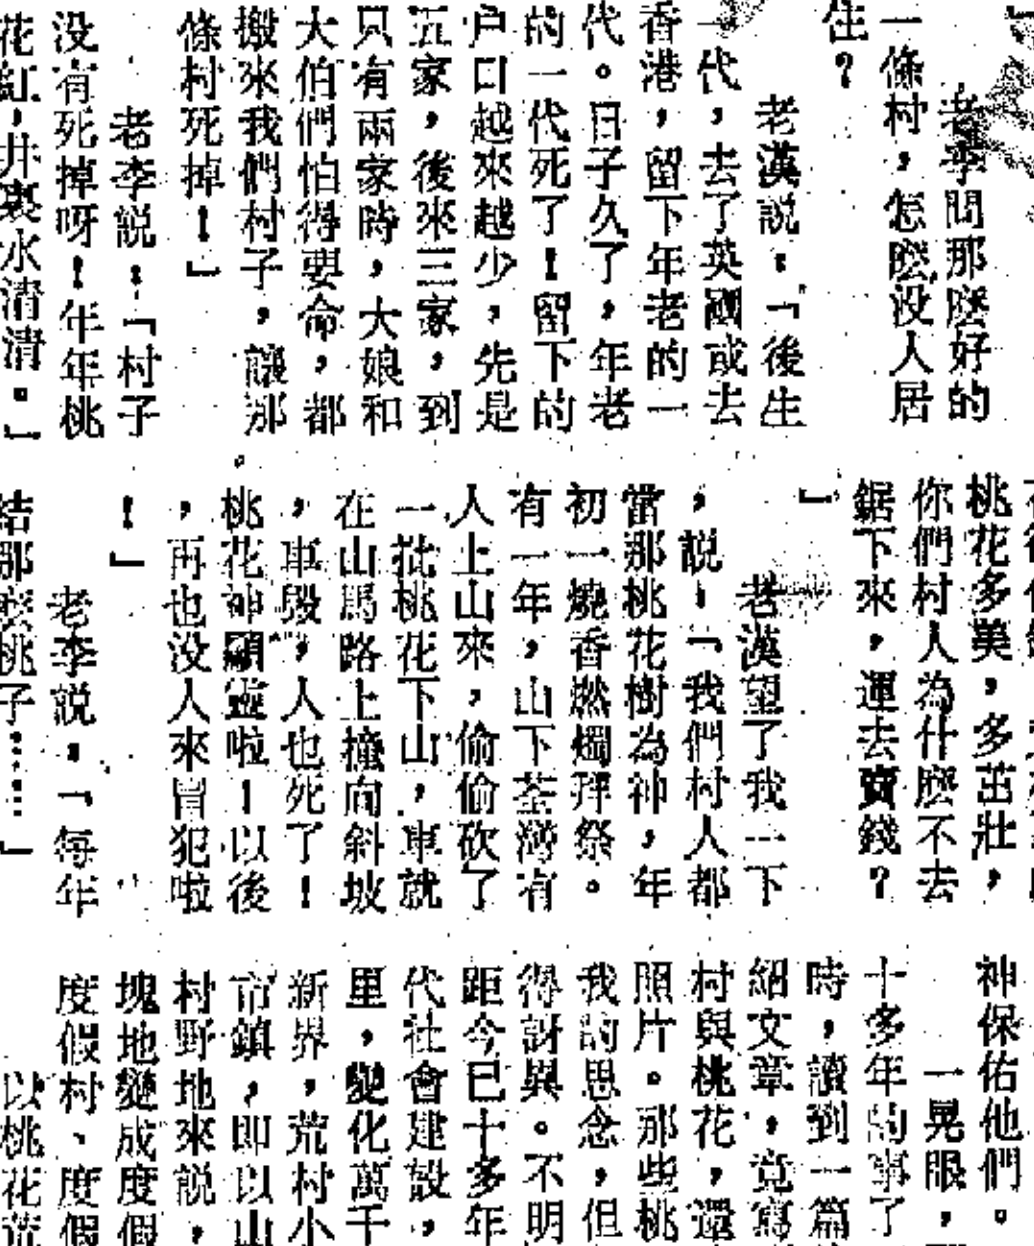 老李問那麼好的
一條村，怎麼没人居
住？
老漢説：「後生
一代，去了英國或去
香港，留下年老的一
代。日子久了，年老
的一代死了！留下的
户口越來越少，先是
五家，後來三家，到
只有兩家時，大娘和
大伯們怕得要命，都
搬來我們村子，讓那
條村死掉！」
老李説：「村子
没有死掉呀！年年桃
花紅，井裏水清清。」
桃花多美，多茁壯，
你們村人為什麼不去
鋸下來，運去賣錢？
」
老漢望了我一下
，説！「我們村人都
當那桃花樹為神，年
初一燒香燃燭拜祭。
有一年，山下荃灣有
人上山來，偷偷砍了
一批桃花下山，車就
在山馬路上撞向斜坡
，車毀，人也死了！
桃花神顯靈啦！以後
，再也没人來冒犯啦
！」
老李説：「每年
結那麼桃子……」
神保佑他們。
一晃眼，
十多年的事了
時，讀到一篇
紹文章，竟寫
村與桃花，還
照片。那些桃
我的思念，但
得訝異。不明
距今已十多年
代社會建設，
里，變化萬千
新界，荒村小
市鎮，即以山
村野地來説，
塊地變成度假
度假村、度假
以桃花荒